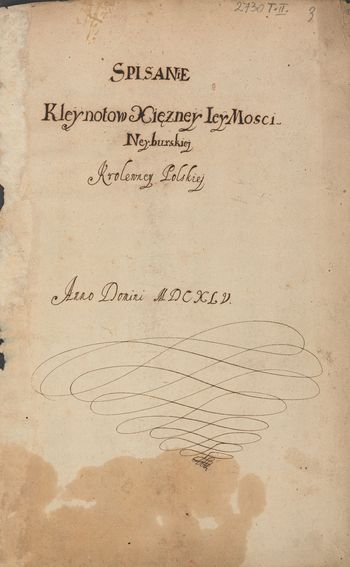 2730 T. II.
3
SPISANIE
Kleynotow Xięzney Iey Mosci
Neyburskiej
Krolewney Polskiej
Anno Domini MDCXLV.